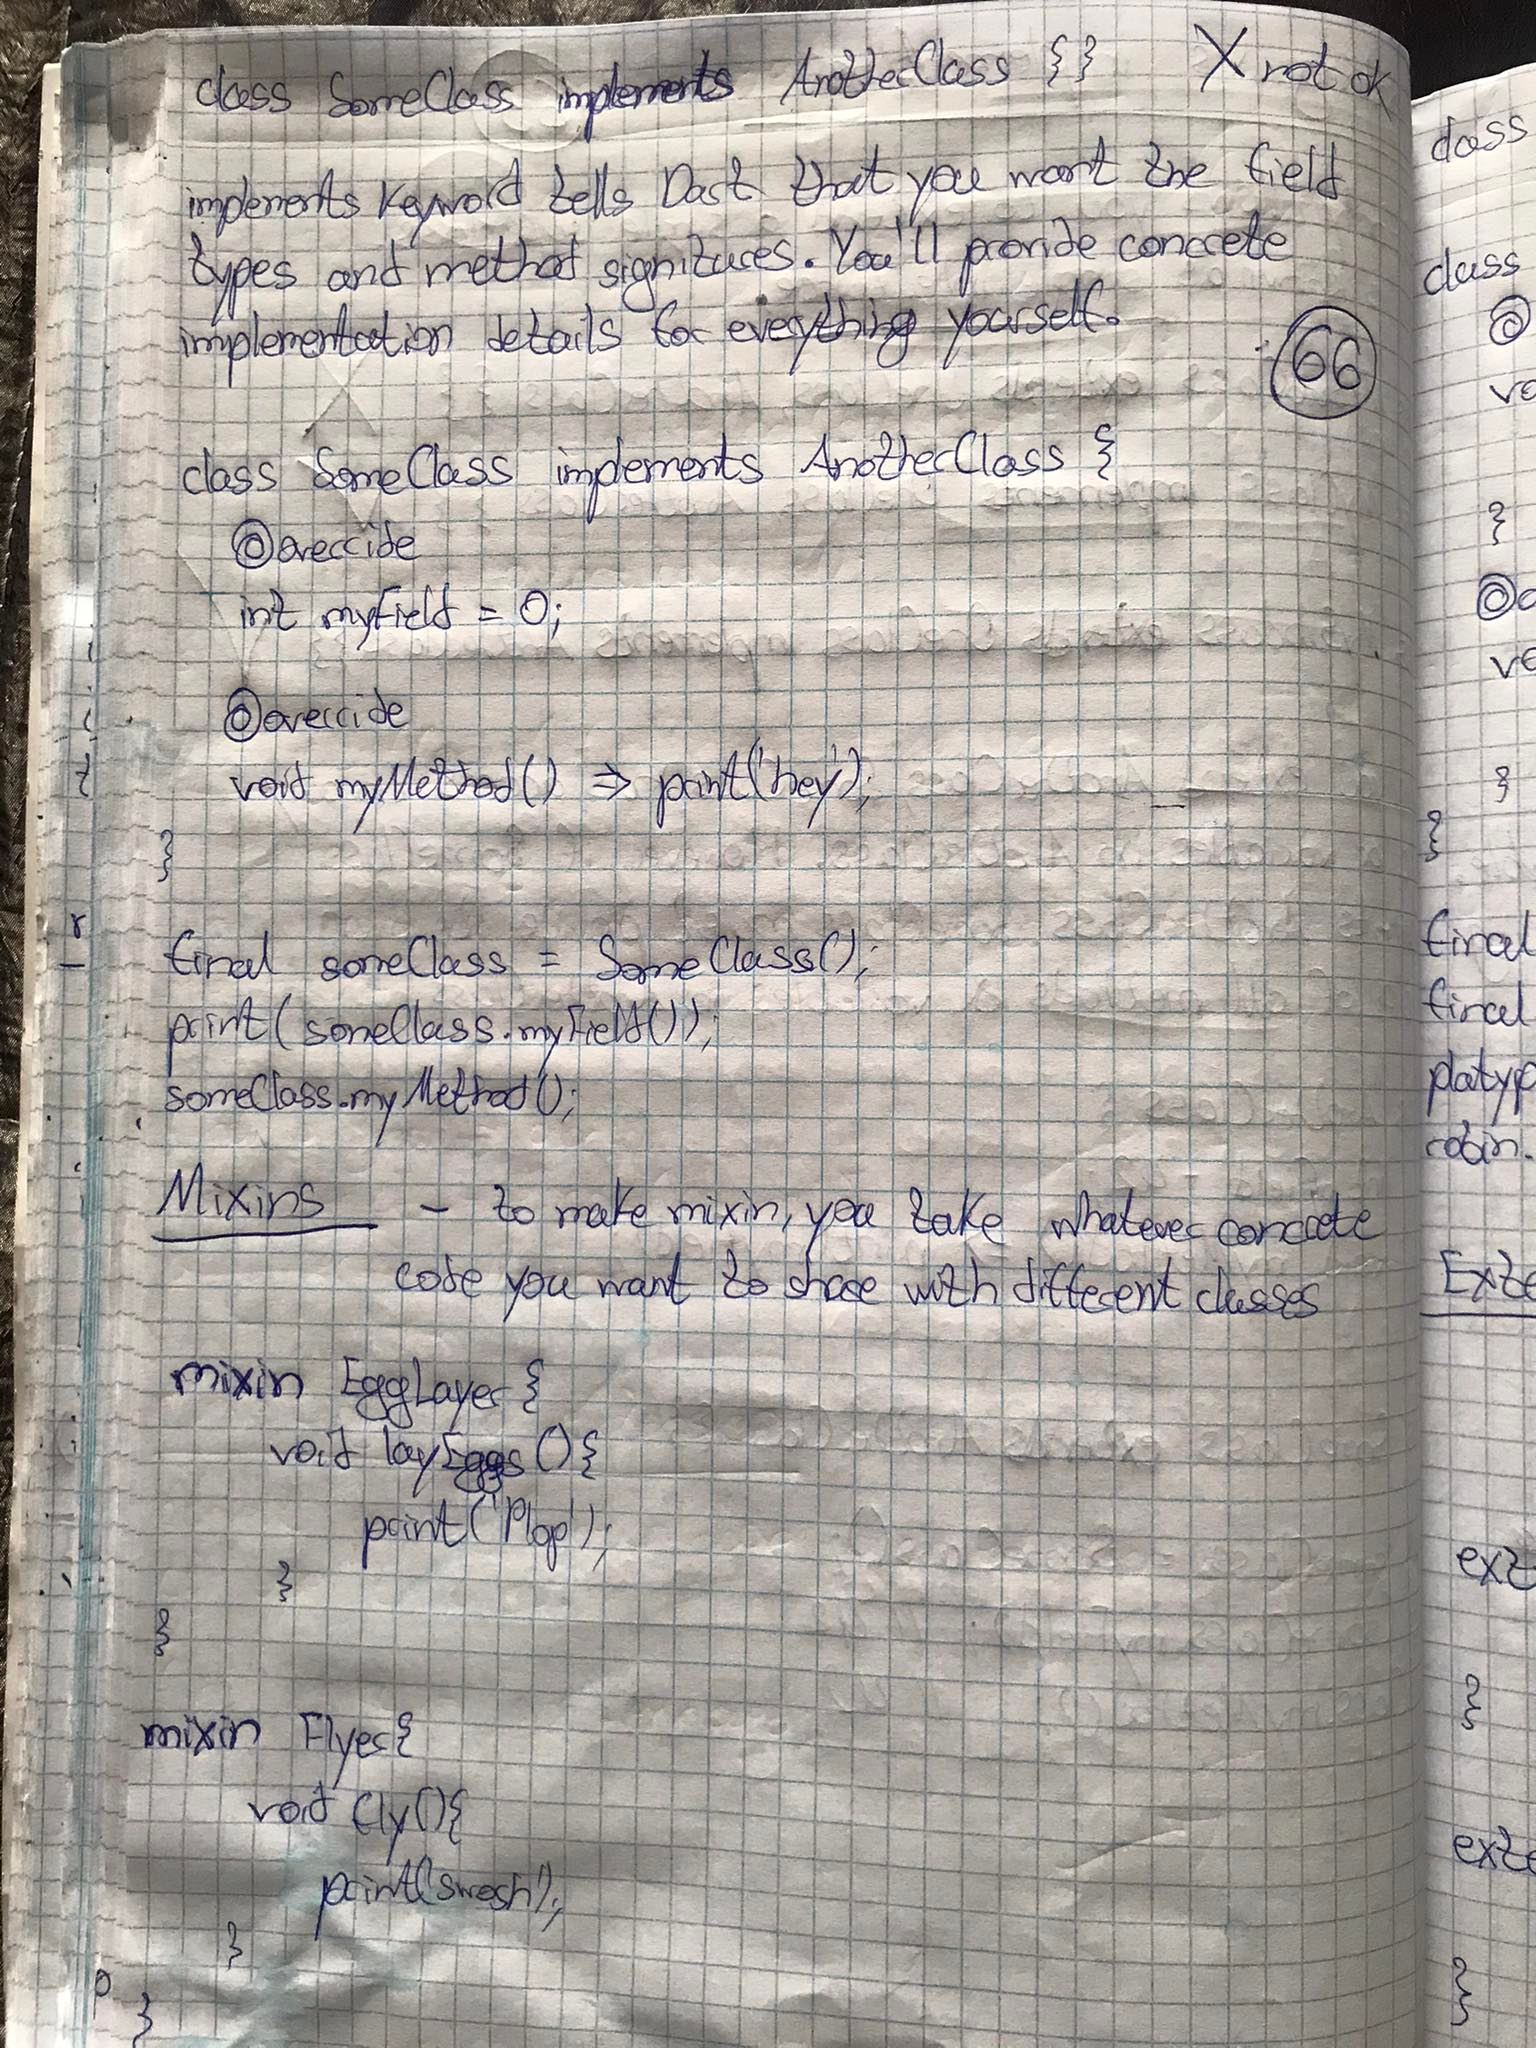 class SomeClass implements AnotherClass {} X not ok
implements keyword tells Dart that you want the field
types and method signitures. You'll provide concrete
implementation details for everything yourself.
66
class SomeClass implements AnotherClass {
@override
int myField = 0;
@override
void myMethod() => print('hey');
}
final someClass = SomeClass();
print(someClass.myField());
someClass.myMethod();
Mixins - to make mixin, you take whatever concrete
code you want to share with different classes
mixin EggLayer {
void layEggs () {
print('Plop');
}
}
mixin Flyer {
void fly() {
print('swosh');
}
}
class
class
@
vo
}
@o
vo
}
}
final
final
platyp
robin.
Exte
exte
}
exte
}